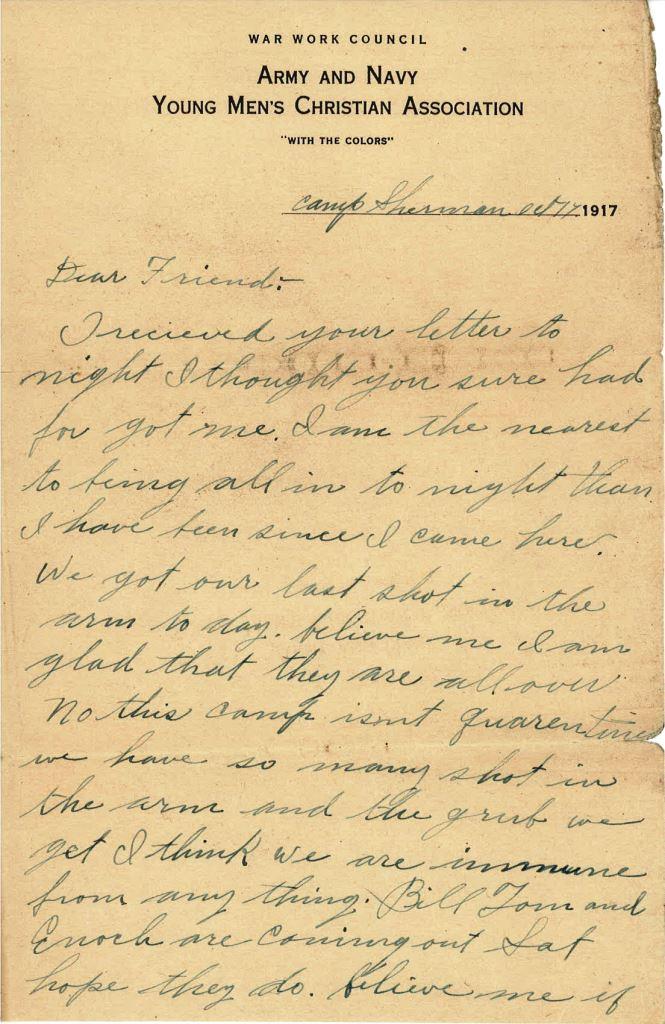 WAR WORK COUNCIL
ARMY AND NAVY
YOUNG MEN'S CHRISTIAN ASSOCIATION
"WITH THE COLORS"
Camp Sherman Oct 17, 1917
Dear Friend:-
I recieved your letter to
night I thought you sure had
for got me. I am the nearest
to being all in to night than
I have been since I came here.
We got our last shot in the
arm to day. believe me I am
glad that they are all over
No this camp isnt quarentined
we have so many shot in
the arm and the grub we
get I think we are immune
from any thing. Bill Tom and
Enoch are coming out Sat
hope they do. believe me if